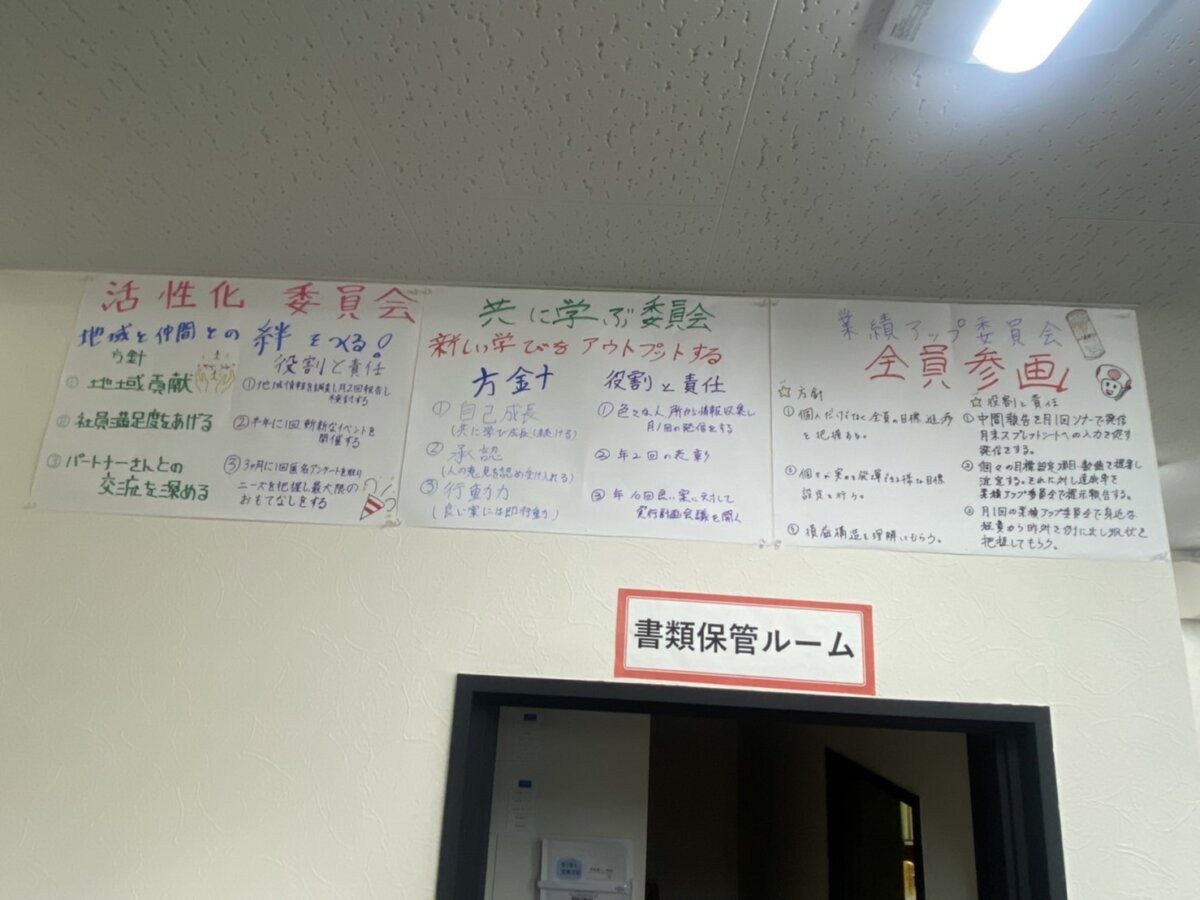 活性化 委員会
地域と仲間との 絆 をつくる!
方針
① 地域貢献
② 社員満足度をあげる
③ パートナーさんとの
交流を深める
役割と責任
① 地域情報を調査し月2回報告し
検討する
② 半年に1回、斬新なイベントを
開催する
③ 3ヶ月に1回匿名アンケートを取り
ニーズを把握し最大限の
おもてなしをする
共に学ぶ委員会
新しい学びをアウトプットする
方針
① 自己成長
(共に学び成長し続ける)
② 承認
(人の意見を認め受け入れる)
③ 行動力
(良い案には即行動)
役割と責任
① 色々な人、所から情報収集し
月1回の発信をする
② 年2回の表彰
③ 年 回良い案に対して
実行計画会議を開く
業績アップ委員会
全員参画
☆ 方針
① 個人だけでなく全員の目標、進捗
を把握する。
② 個々が実力を発揮できる様な目標
設定を行う。
③ 損益構造を理解してもらう。
☆ 役割と責任
① 中間報告を月1回 で発信
月末スプレッドシートへの入力を促す
発信をする。
② 個々の目標設定項目、動機を提案し
設定する。それに対し達成率を
業績アップ委員会で提示報告する。
③ 月1回の業績アップ委員会で身近な
経費から し現状を
把握してもらう。
書類保管ルーム